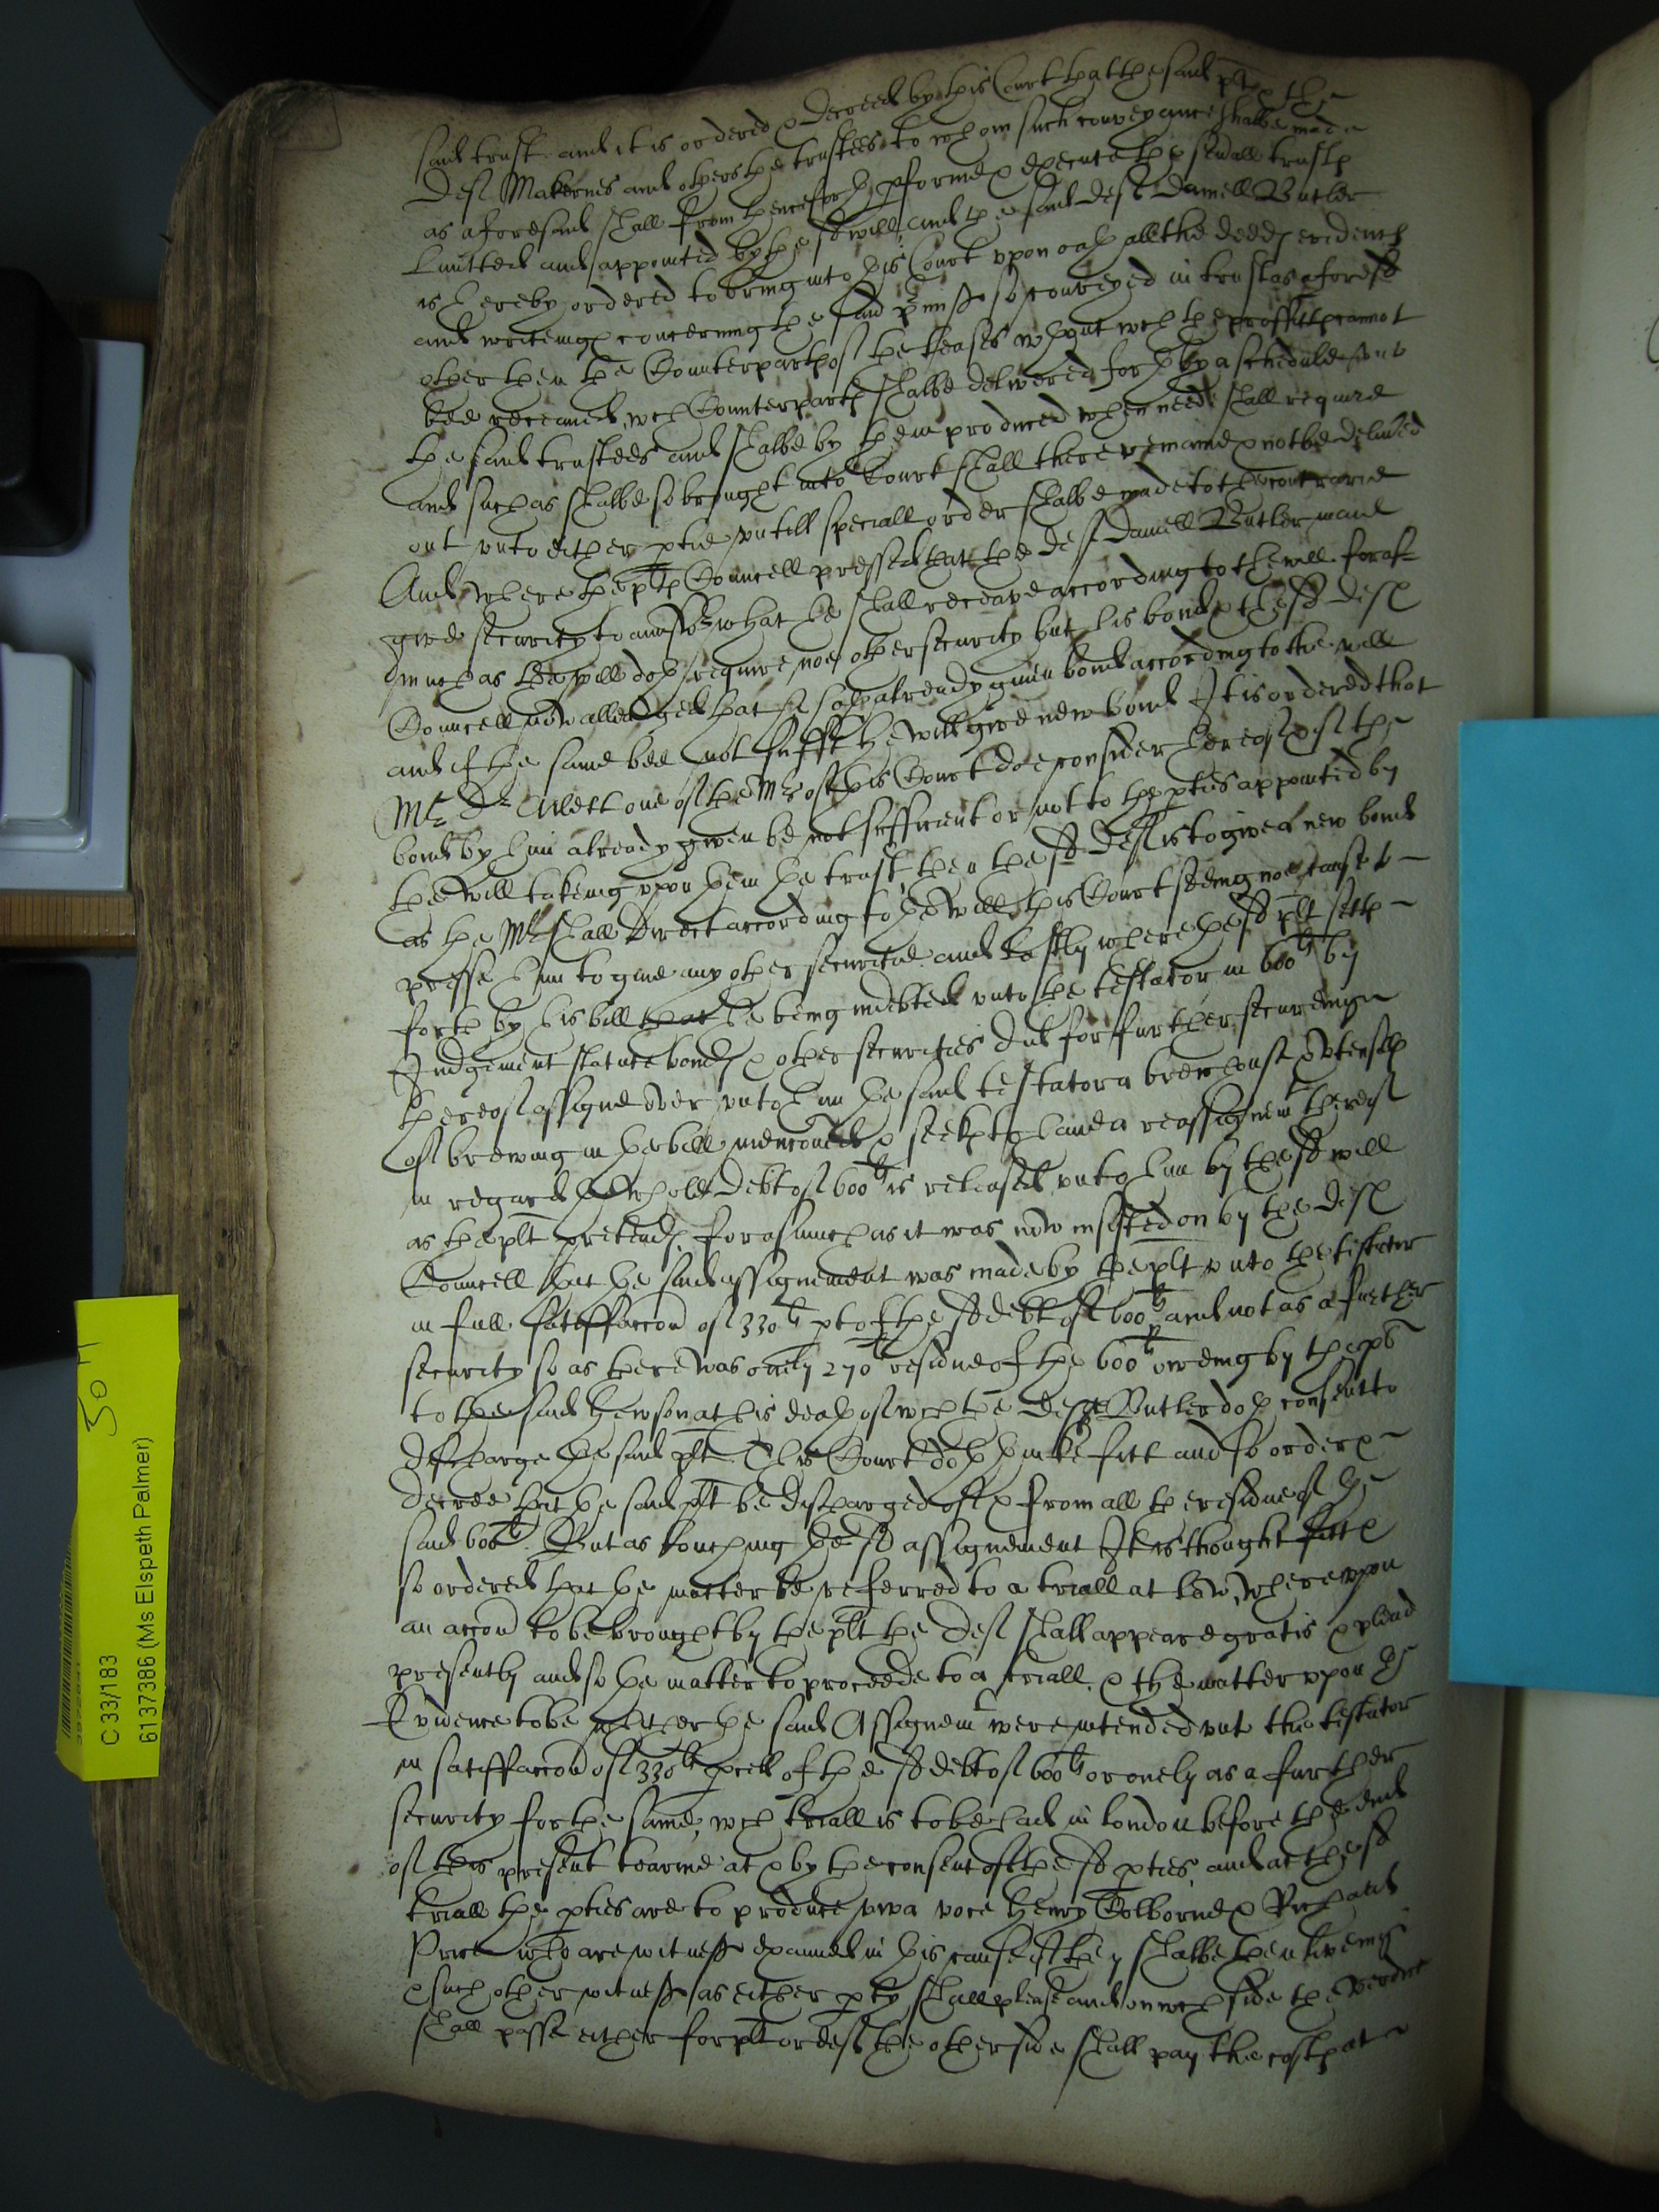 said trust and it is ordered & decreed by this Court that the said plt & the
deft Makernes and others the trustees to whom such conveyance shalbe made
as aforesaid shall from henceforth pforme & execute the sevall trusts
limitted and appointed by the sd will, and the said deft Daniell Butler
is hereby ordered to bring into this Court upon oath all the deeds evidences
and writeings concerning the said pmisses so conveyed in trust as aforesd
other then the Counterparts of the leases wthout wch the proffitts cannot
bee receaved, wch Counterparts shalbe delivered forth by a schedule unto
the said trustees and shalbe by them produced when need shall require
and such as shalbe so brought into Court shall there remaine & not be delivered
out unto either ptie untill speciall order shalbe made to the contrarie
And where the plts Councell pressed that the deft Daniell Butler maie
give security to answer what he shall receave according to the will, foras-
much as the will doth require noe other security but his bond, & the sd defts
Councell now alledged that he hath already given bond according to the will
and if the same bee not suffict he will give new bond It is ordered that
Mr Dr one of the Mrs of this Court doe consider hereof & if the
bond by him already given be not sufficient or not to the pties appointed by
the will takeing upon them the trust, then the sd deft is to give a new bond
as the Mr shall direct according to the will, this Court seeing noe cause to
presse him to give any other securitie. and lastly where the sd plt setts
forth by his bill that he being indebted unto the testator in 600li by
Judgement statute bonds & other securities did for further secureinge
thereof assigne over unto him the said testator a brewhouse & utensills
of brewing in the bill menconed & seeks to have a reassignemt thereof
in regard the whole debt of 600li is released unto him by the sd will
as the plt pretends, forasmuch as it was now insisted on by the defts
Councell that the said assignement was made by the plt unto the testator
in full satisffaccon of 330li pt of the sd debt of 600li and not as a further
security so as there was onely 270li residue of the 600li oweing by the plt
to the said Hewson at his death of wch the deft Butler doth consent to
discharge the said plt. This Court doth thinke fitt and so order &
decree that the said plt be discharged of & from all the residue of the
said 600li. But as touching the sd assignement It is thought fitt &
so ordered that the matter be referred to a triall at law, whereupon
an accon to be brought by the plt the deft shall appeare gratis & plead
presently and so the matter to proceede to a triall, & the matter upon the
Evidence to be whether the said Assignemt were intended unto the testator
in satisffaccon of 330li pcell of the sd debt of 600li or onely as a further
security for the same, wch triall is to be had in London before the end
of this present tearme at & by the consent of the sd pties, and at the sd
triall the pties are to produce viva voce Henry Colborne & Richard
Price who are witnesses examined in this cause if they shalbe then liveing
& such other witnesses as either pty shall please and on wch side the verdict
shall passe either for plt or deft the other side shall pay the costs at
50 H
C 33/183
6137386 (Ms Elspeth Palmer)